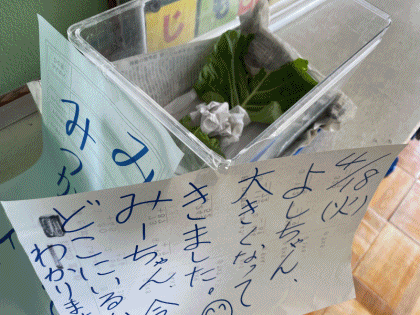 4/18(火)
よしちゃん、
大きくなって
きました。
みーちゃん、今
どこにいる
わかりま
み
みつか